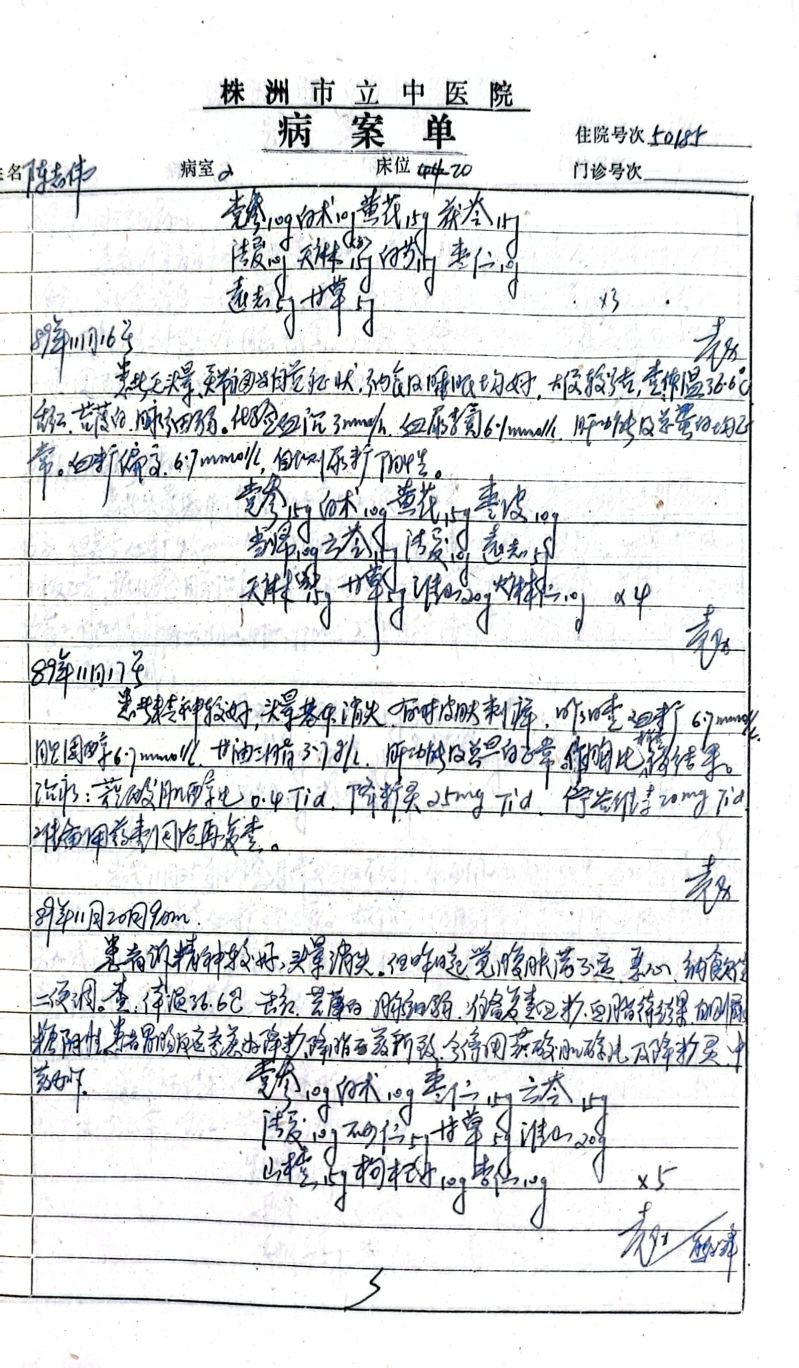 株洲市立中医院
病案单
住院号次 50185
姓名 陈志伟 病室 2 床位 20 门诊号次
党参10g 白术10g 黄芪15g 茯苓15g
法夏10g 天麻15g 白芍15g 枣仁10g
远志5g 甘草5g ×3
89年11月16号
患者无头晕, 自觉症状, 纳食及睡眠均好, 大便较结, 查体温36.6℃
舌红, 苔薄白, 脉细弱。化验血沉3mm/h, 血尿素氮6.1mmol/L, 肝功能及总蛋白均正
常。血糖偏高, 6.7mmol/L, 但此则尿糖阴性。
党参15g 白术10g 黄芪15g 枣皮10g
当归10g 云苓15g 法夏10g 远志5g
天麻15g 甘草5g 淮山20g 火麻仁10g ×4
89年11月17号
患者精神较好, 头晕基本消失 有时皮肤刺痒, 昨日查血糖6.7mmol/L
胆固醇6.7mmol/L, 甘油三脂 肝功能及总蛋白正常 结果。
治疗: 菸酸肌醇片 0.4 Tid, 降糖灵 25mg Tid, 谷维素 20mg Tid
准备用药来月后再复查。
89年11月20日9am.
患者诉精神较好, 头晕消失。但昨日起觉腹胀不适, 恶心, 纳食
二便调。查: 体温36.6℃ 舌红, 苔薄白 脉细弱, 准备复查血糖、血脂待结果, 自测尿
糖阴性, 患者胃肠反应考虑为降糖、降脂西药所致, 今停用菸酸肌醇片及降糖灵, 中
药如下.
党参10g 白术10g 枣仁15g 云苓15g
法夏10g 砂仁5g 甘草5g 淮山20g
山楂15g 枸杞子10g 枣仁10g ×5
5